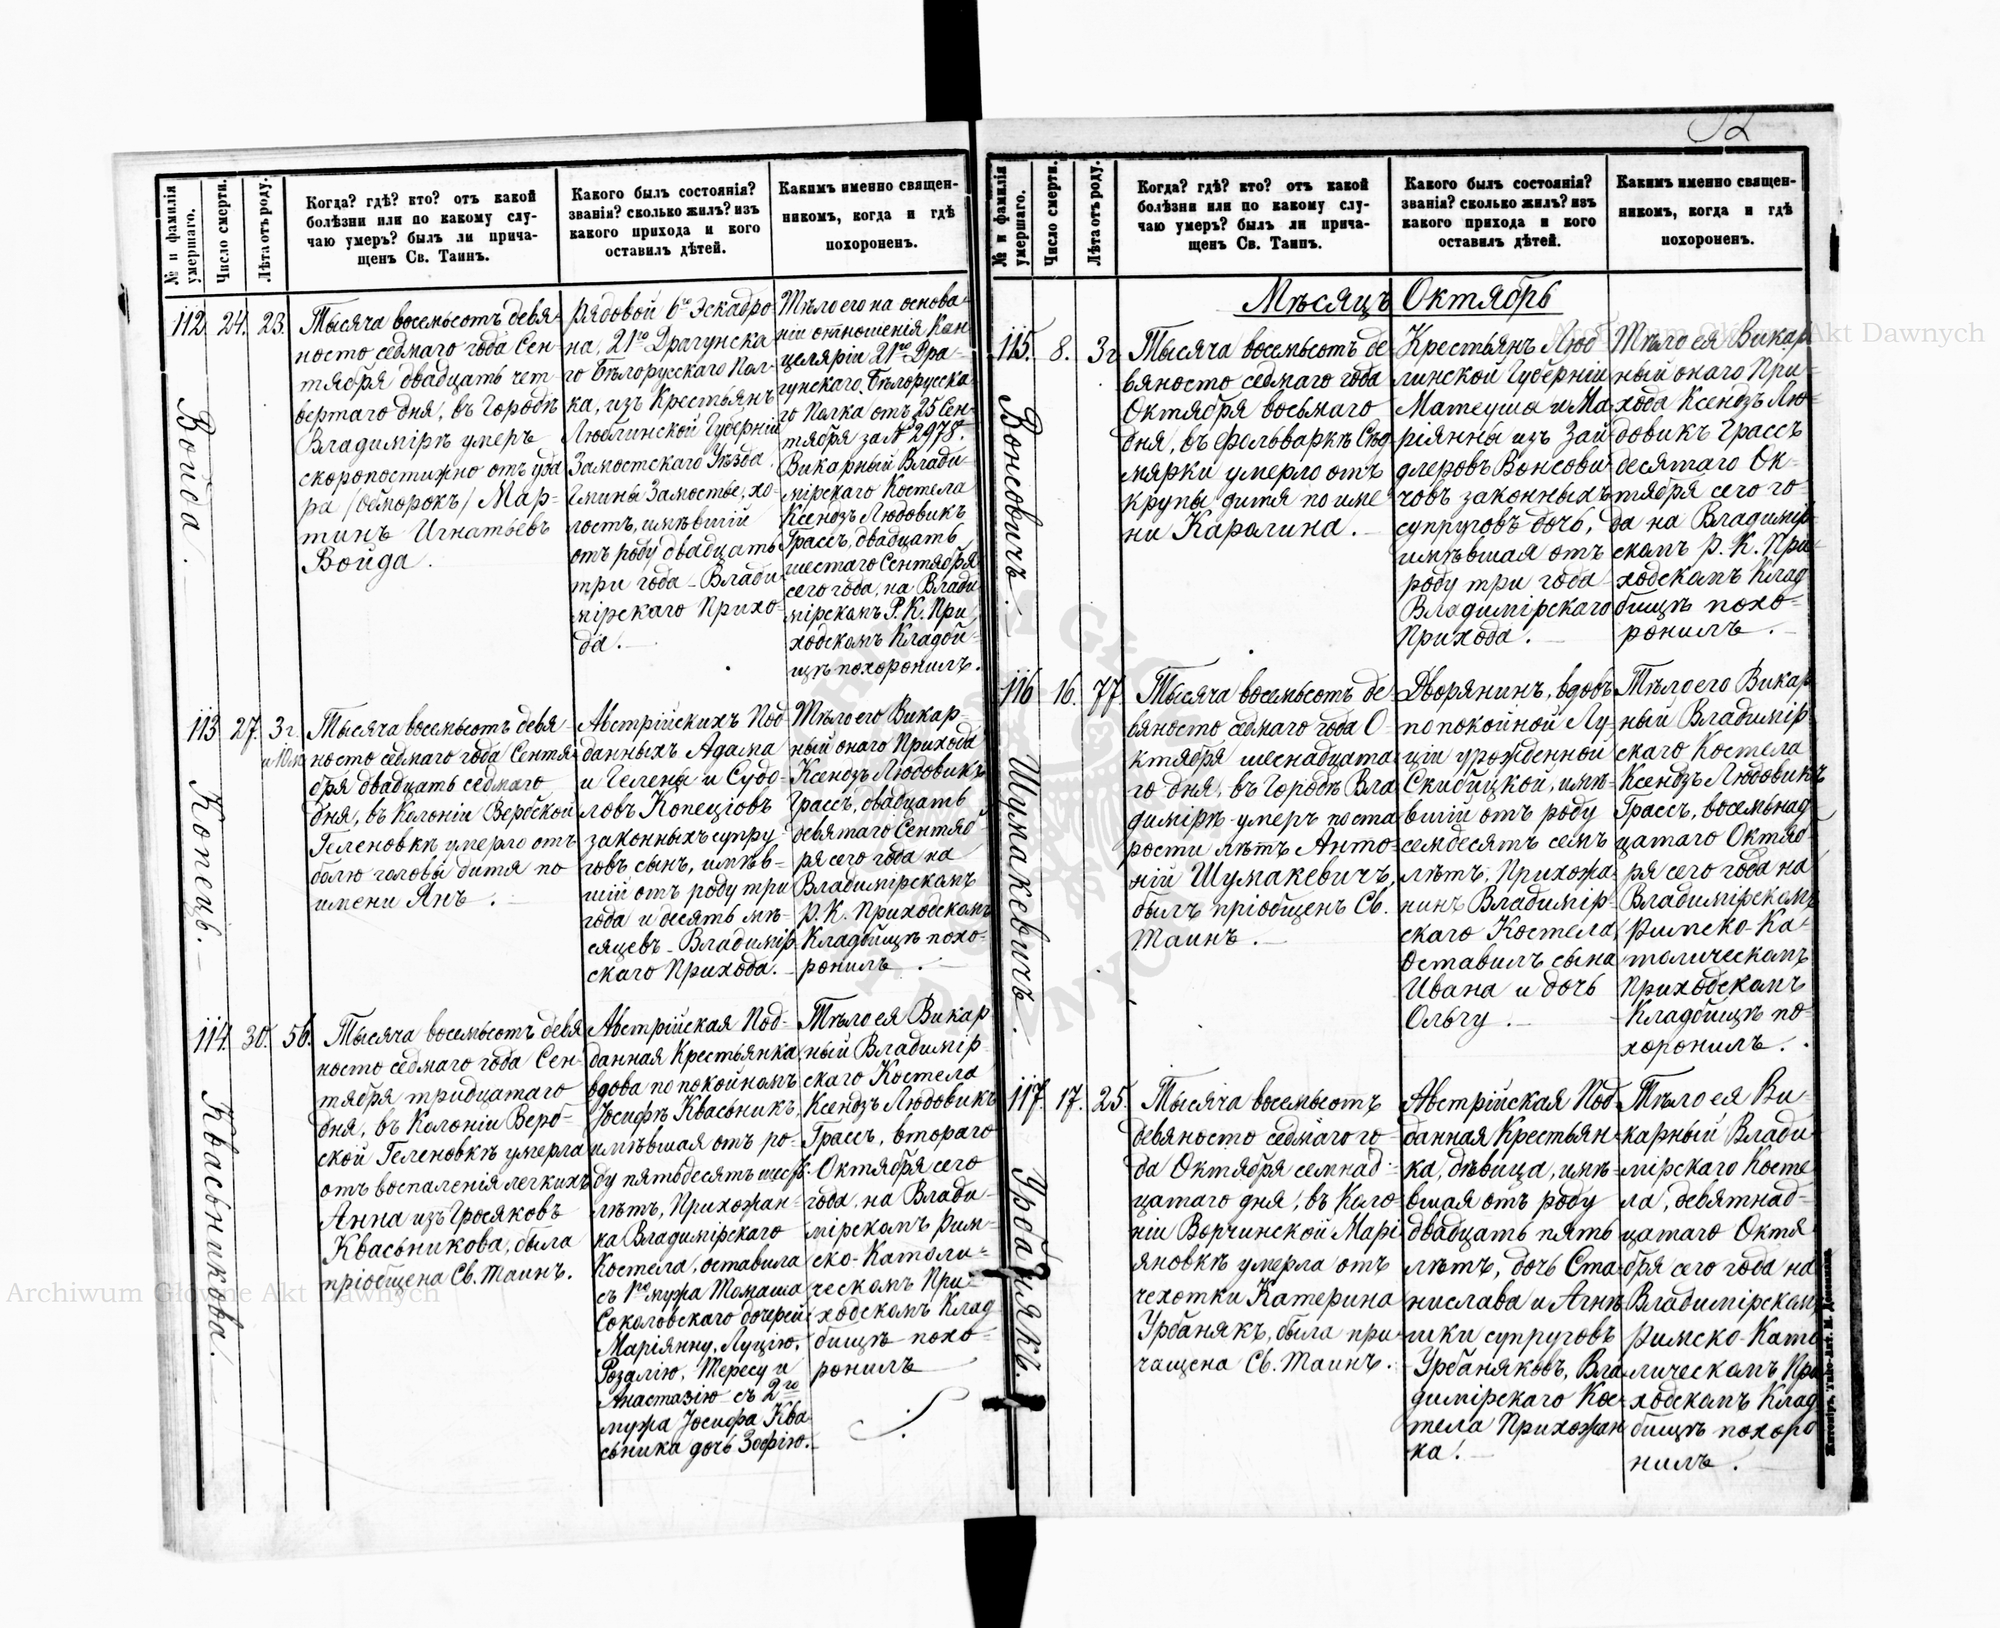 № и фамилія умершаго.
Число смерти.
Лѣта отъ роду.
Когда? гдѣ? кто? отъ какой
болѣзни или по какому слу-
чаю умеръ? былъ ли прича-
щенъ Св. Таинъ.
Какого былъ состоянія?
званія? сколько жилъ? изъ
какого прихода и кого
оставилъ дѣтей.
Какимъ именно священ-
никомъ, когда и гдѣ
похороненъ.
112. 24. 23.
Войда.
Тысяча восемьсотъ девя-
носто седмаго года Сен-
тября двадцать чет
вертаго дня, въ Городѣ
Владимірѣ умеръ
скоропостижно отъ уда
ра (обморокъ) Мар-
тинъ Игнатьевъ
Войда.
Рядовой 6го Эскадро-
на, 21го Драгунска
го Бѣлорусскаго Пол-
ка, изъ Крестьянъ
Люблинской Губерніи
Замостскаго Уѣзда
Гмины Замостье, хо-
лостъ, имѣвшій
отъ роду двадцать
три года - Влади
мірскаго Прихо-
да.
Тѣло его на основа
ніи отношенія Кан
целяріи 21го Дра-
гунскаго Бѣлорусска
го Полка отъ 25 Сен-
тября за № 2978.
Викарный Влади-
мірскаго Костела
Ксендзъ Людовикъ
Грассъ, двадцать
шестаго Сентября
сего года, на Влади
мірскомъ Р. К. При
ходскомъ Кладби-
щѣ похоронилъ.
113. 27. 3 г.
и 10 м.
Копецъ.
Тысяча восемьсотъ девя-
носто седмаго года Сентя-
бря двадцать седмаго
дня, въ Колоніи Вербской
Геленовкѣ умерло отъ
болю головы дитя по
имени Янъ.
Австрійскихъ Под
данныхъ Адама
и Гелены и Судо-
ловъ Копеціовъ
законныхъ супру-
говъ сынъ, имѣв-
шій отъ роду три
года и десять мѣ-
сяцевъ - Владимір
скаго Прихода.
Тѣло его Викар-
ный онаго Прихода
Ксендзъ Людовикъ
Грассъ, двадцать
девятаго Сентяб-
ря сего года на
Владимірскомъ
Р. К. Приходскомъ
Кладбищѣ похо-
ронилъ.
114. 30. 56.
Квасьникова.
Тысяча восемьсотъ девя
носто седмаго года Сен-
тября тридцатаго
дня, въ Колоніи Верб-
ской Геленовкѣ умерла
отъ воспаленія легкихъ
Анна изъ Гросяковъ
Квасьникова, была
пріобщена Св. Таинъ.
Австрійская Под-
данная Крестьянка,
вдова по покойномъ
Іосифѣ Квасьникъ,
имѣвшая отъ ро-
ду пятьдесятъ шесть
лѣтъ, Прихожан-
ка Владимірскаго
Костела, оставила
съ 1го мужа Томаша
Соколовскаго дочерей
Маріянну, Луцію,
Розалію, Тересу и
Анастазію - съ 2го
мужа Іосифа Ква
сьника дочь Зофію.
Тѣло ея Викар
ный Владимір-
скаго Костела
Ксендзъ Людовикъ
Грассъ, втораго
Октября сего
года, на Влади-
мірскомъ Рим-
ско-Католи-
ческомъ При-
ходскомъ Клад
бищѣ похо-
ронилъ
№ и фамилія умершаго.
Число смерти.
Лѣта отъ роду.
Когда? гдѣ? кто? отъ какой
болѣзни или по какому слу-
чаю умеръ? былъ ли прича-
щенъ Св. Таинъ.
Какого былъ состоянія?
званія? сколько жилъ? изъ
какого прихода и кого
оставилъ дѣтей.
Какимъ именно священ-
никомъ, когда и гдѣ
похороненъ.
Мѣсяцъ Октябрь
115. 8. 3 г.
Вонсовичъ.
Тысяча восемьсотъ де
вяносто седмаго года
Октября восьмаго
дня, въ Фольваркѣ
мярки умерло отъ
крупы дитя по име
ни Каролина.
Крестьянъ Люб
линской Губерніи
Матеуша и Ма-
ріянны изъ Зай
длеровъ Вонсови
човъ законныхъ
супруговъ дочь,
имѣвшая отъ
роду три года
Владимірскаго
Прихода.
Тѣло ея Викар
ный онаго При-
хода Ксендзъ Лю-
довикъ Грассъ
десятаго Ок-
тября сего го-
да на Владимір-
скомъ Р. К. При
ходскомъ Клад
бищѣ похо-
ронилъ.
116 16. 77.
Шумакевичъ.
Тысяча восемьсотъ де
вяносто седмаго года О-
ктября шеснадцата
го дня, въ Городѣ Вла
димірѣ умеръ по ста
рости лѣтъ Анто-
ній Шумакевичъ,
былъ пріобщенъ Св.
Таинъ.
Дворянинъ, вдовъ
по покойной Лу-
ціи урожденной
Скибицкой, имѣ-
вшій отъ роду
семдесятъ семь
лѣтъ, Прихожа-
нинъ Владимір-
скаго Костела,
Оставилъ сына
Ивана и дочь
Ольгу.
Тѣло его Викар
ный Владимір-
скаго Костела
Ксендзъ Людовикъ
Грассъ, восемьнад
цатаго Октяб-
ря сего года на
Владимірскомъ
Римско-Ка-
толическомъ
Приходскомъ
Кладбищѣ по-
хоронилъ.
117. 17. 25.
Урбанякъ.
Тысяча восемьсотъ
девяносто седмаго го-
да Октября семнад-
цатаго дня, въ Коло-
ніи Ворчинской Марі
яновкѣ умерла отъ
чехотки Катерина
Урбанякъ, была при-
чащена Св. Таинъ.
Австрійская Под
данная Крестьян-
ка, дѣвица, имѣ-
вшая отъ роду
двадцать пять
лѣтъ, дочь Ста-
нислава и Агнѣ
шки супруговъ
Урбаняковъ, Вла
димірскаго Кос-
тела Прихожан
ка.
Тѣло ея Ви-
карный Влади-
мірскаго Косте
ла, девятнад-
цатаго Октя
бря сего года на
Владимірскомъ
Римско-Като
лическомъ При
ходскомъ Клад
бищѣ похоро
нилъ.
Archiwum Główne Akt Dawnych
Archiwum Główne Akt Dawnych